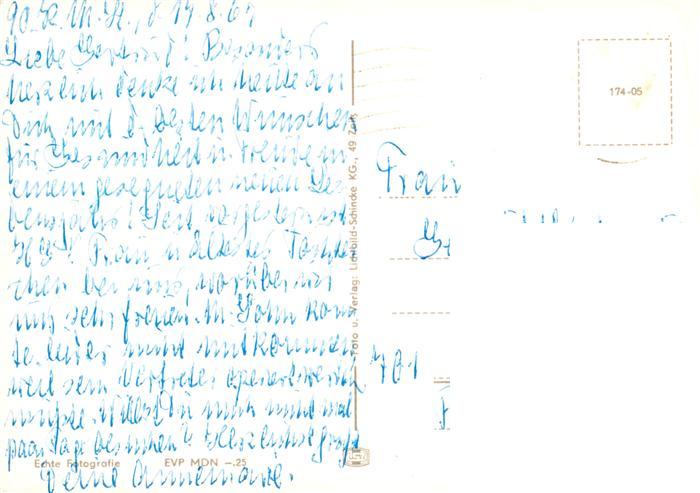 Liebe Gertrud! Besonders
herzlich denke ich heute an
Dich mit d. besten Wünschen
für Gesundheit u. Freude in
einem gesegneten neuen Le-
bensjahr! Seit vorgestern ist
Frau u. ältestes Töchter-
chen bei uns, worüber wir
uns sehr freuen. M. Sohn konn-
te leider nicht mitkommen
weil sein Vertreter operiert werden
mußte. Willst Du mich nicht mal
paar Tage besuchen? Herzlichst grüßt
Deine Annemarie.
Echte Fotografie EVP MDN —.25
Foto u. Verlag: Lichtbild-Schincke KG., 49 Zeitz
174-05
Frau
701